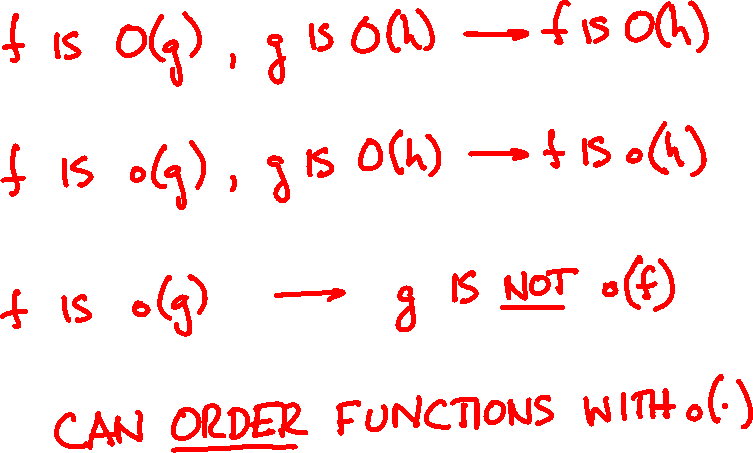 f is O(g), g is O(h) → f is O(h)
f is o(g), g is O(h) → f is o(h)
f is o(g) → g is NOT o(f)
CAN ORDER FUNCTIONS WITH o(·)